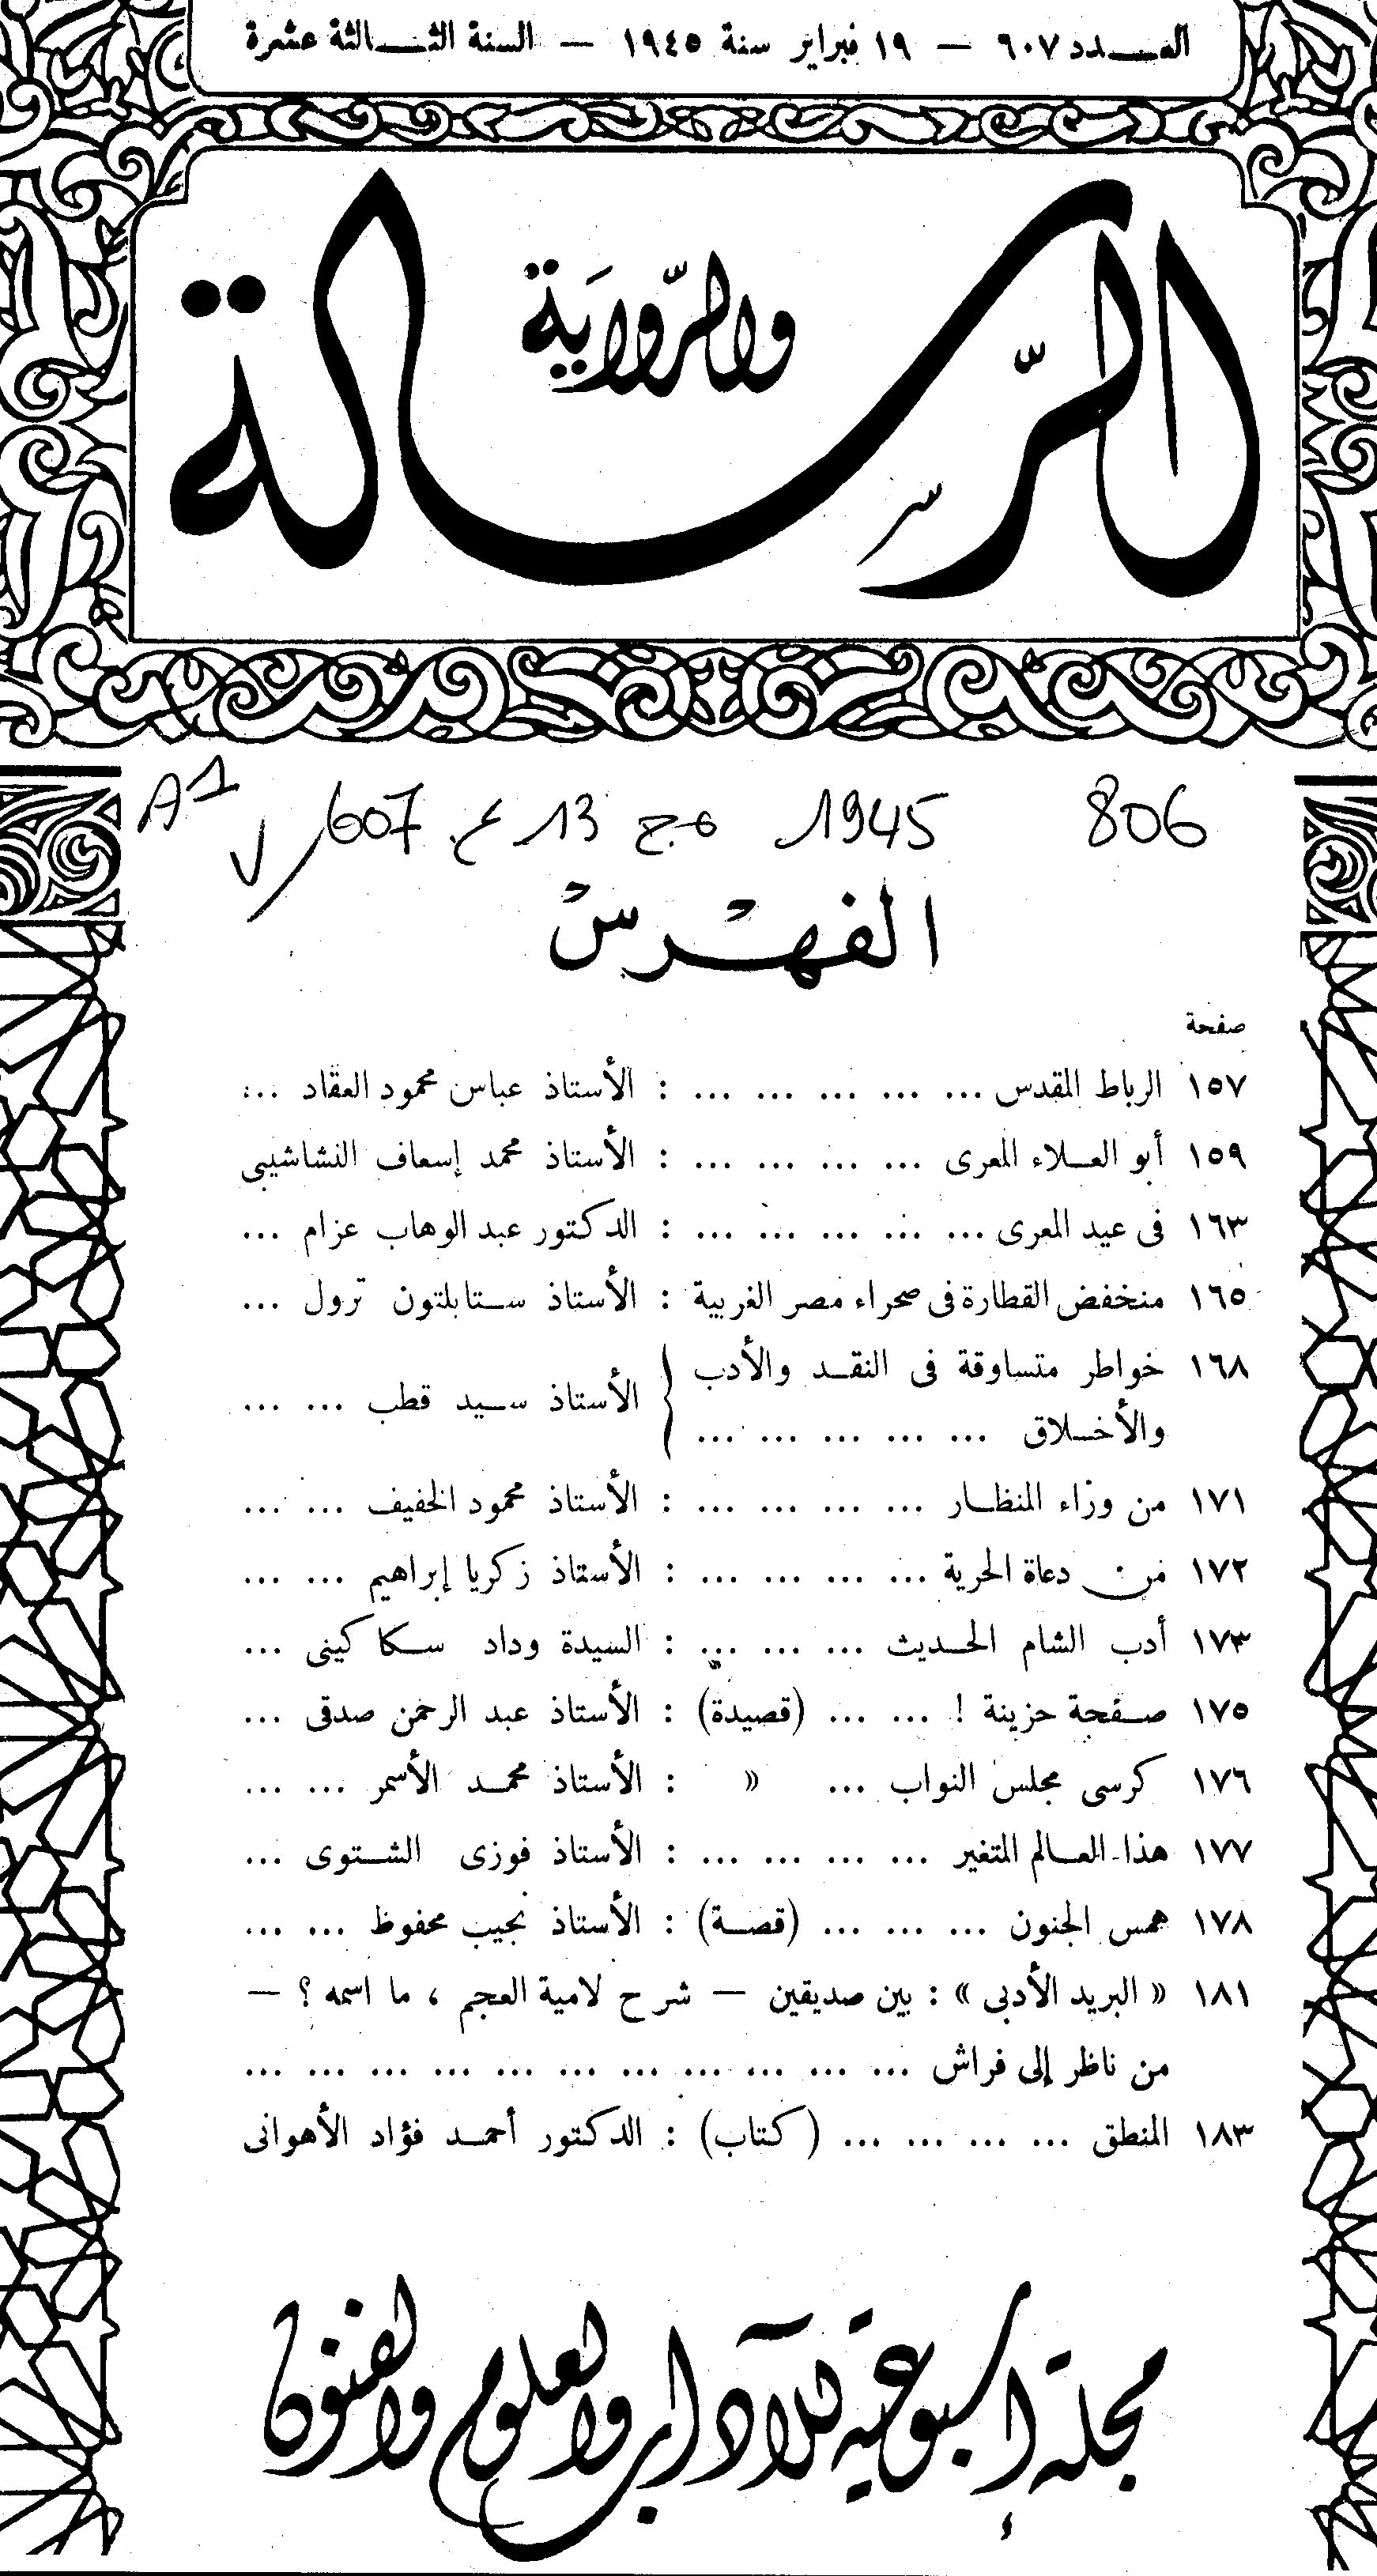 العدد ٦٠٧ — ١٩ فبراير سنة ١٩٤٥ — السنة الثالثة عشرة
الرسالة
والرّوَاية
806 1945 مج 13 ع. 607 A1
الفهْرسْ
صفحة
١٥٧ الرباط المقدس ... ... ... ... ... : الأستاذ عباس محمود العقاد ...
١٥٩ أبو العلاء المعرى ... ... ... ... : الأستاذ محمد إسعاف النشاشيبى
١٦٣ فى عيد المعرى ... ... ... ... ... : الدكتور عبد الوهاب عزام ...
١٦٥ منخفض القطارة فى صحراء مصر الغربية : الأستاذ ستابلتون ترول ...
١٦٨ خواطر متساوقة فى النقد والأدب
والأخلاق ... ... ... ... ... } الأستاذ سيد قطب ... ...
١٧١ من وراء المنظار ... ... ... ... : الأستاذ محمود الخفيف ... ...
١٧٢ من دعاة الحرية ... ... ... ... : الأستاذ زكريا إبراهيم ... ...
١٧٣ أدب الشام الحديث ... ... ... : السيدة وداد سكاكينى ...
١٧٥ صفحة حزينة ! ... ... (قصيدة) : الأستاذ عبد الرحمن صدقى ...
١٧٦ كرسى مجلس النواب ... » : الأستاذ محمد الأسمر ... ...
١٧٧ هذا العالم المتغير ... ... ... ... : الأستاذ فوزى الشتوى ...
١٧٨ همس الجنون ... ... ... (قصة) : الأستاذ نجيب محفوظ ... ...
١٨١ « البريد الأدبى » : بين صديقين — شرح لامية العجم ، ما اسمه ؟ —
من ناظر إلى فراش ... ... ... ... ... ... ... ... ... ... ...
١٨٣ المنطق ... ... ... ... (كتاب) : الدكتور أحمد فؤاد الأهوانى
مجلة إسبوعية للآداب والعلوم والفنون